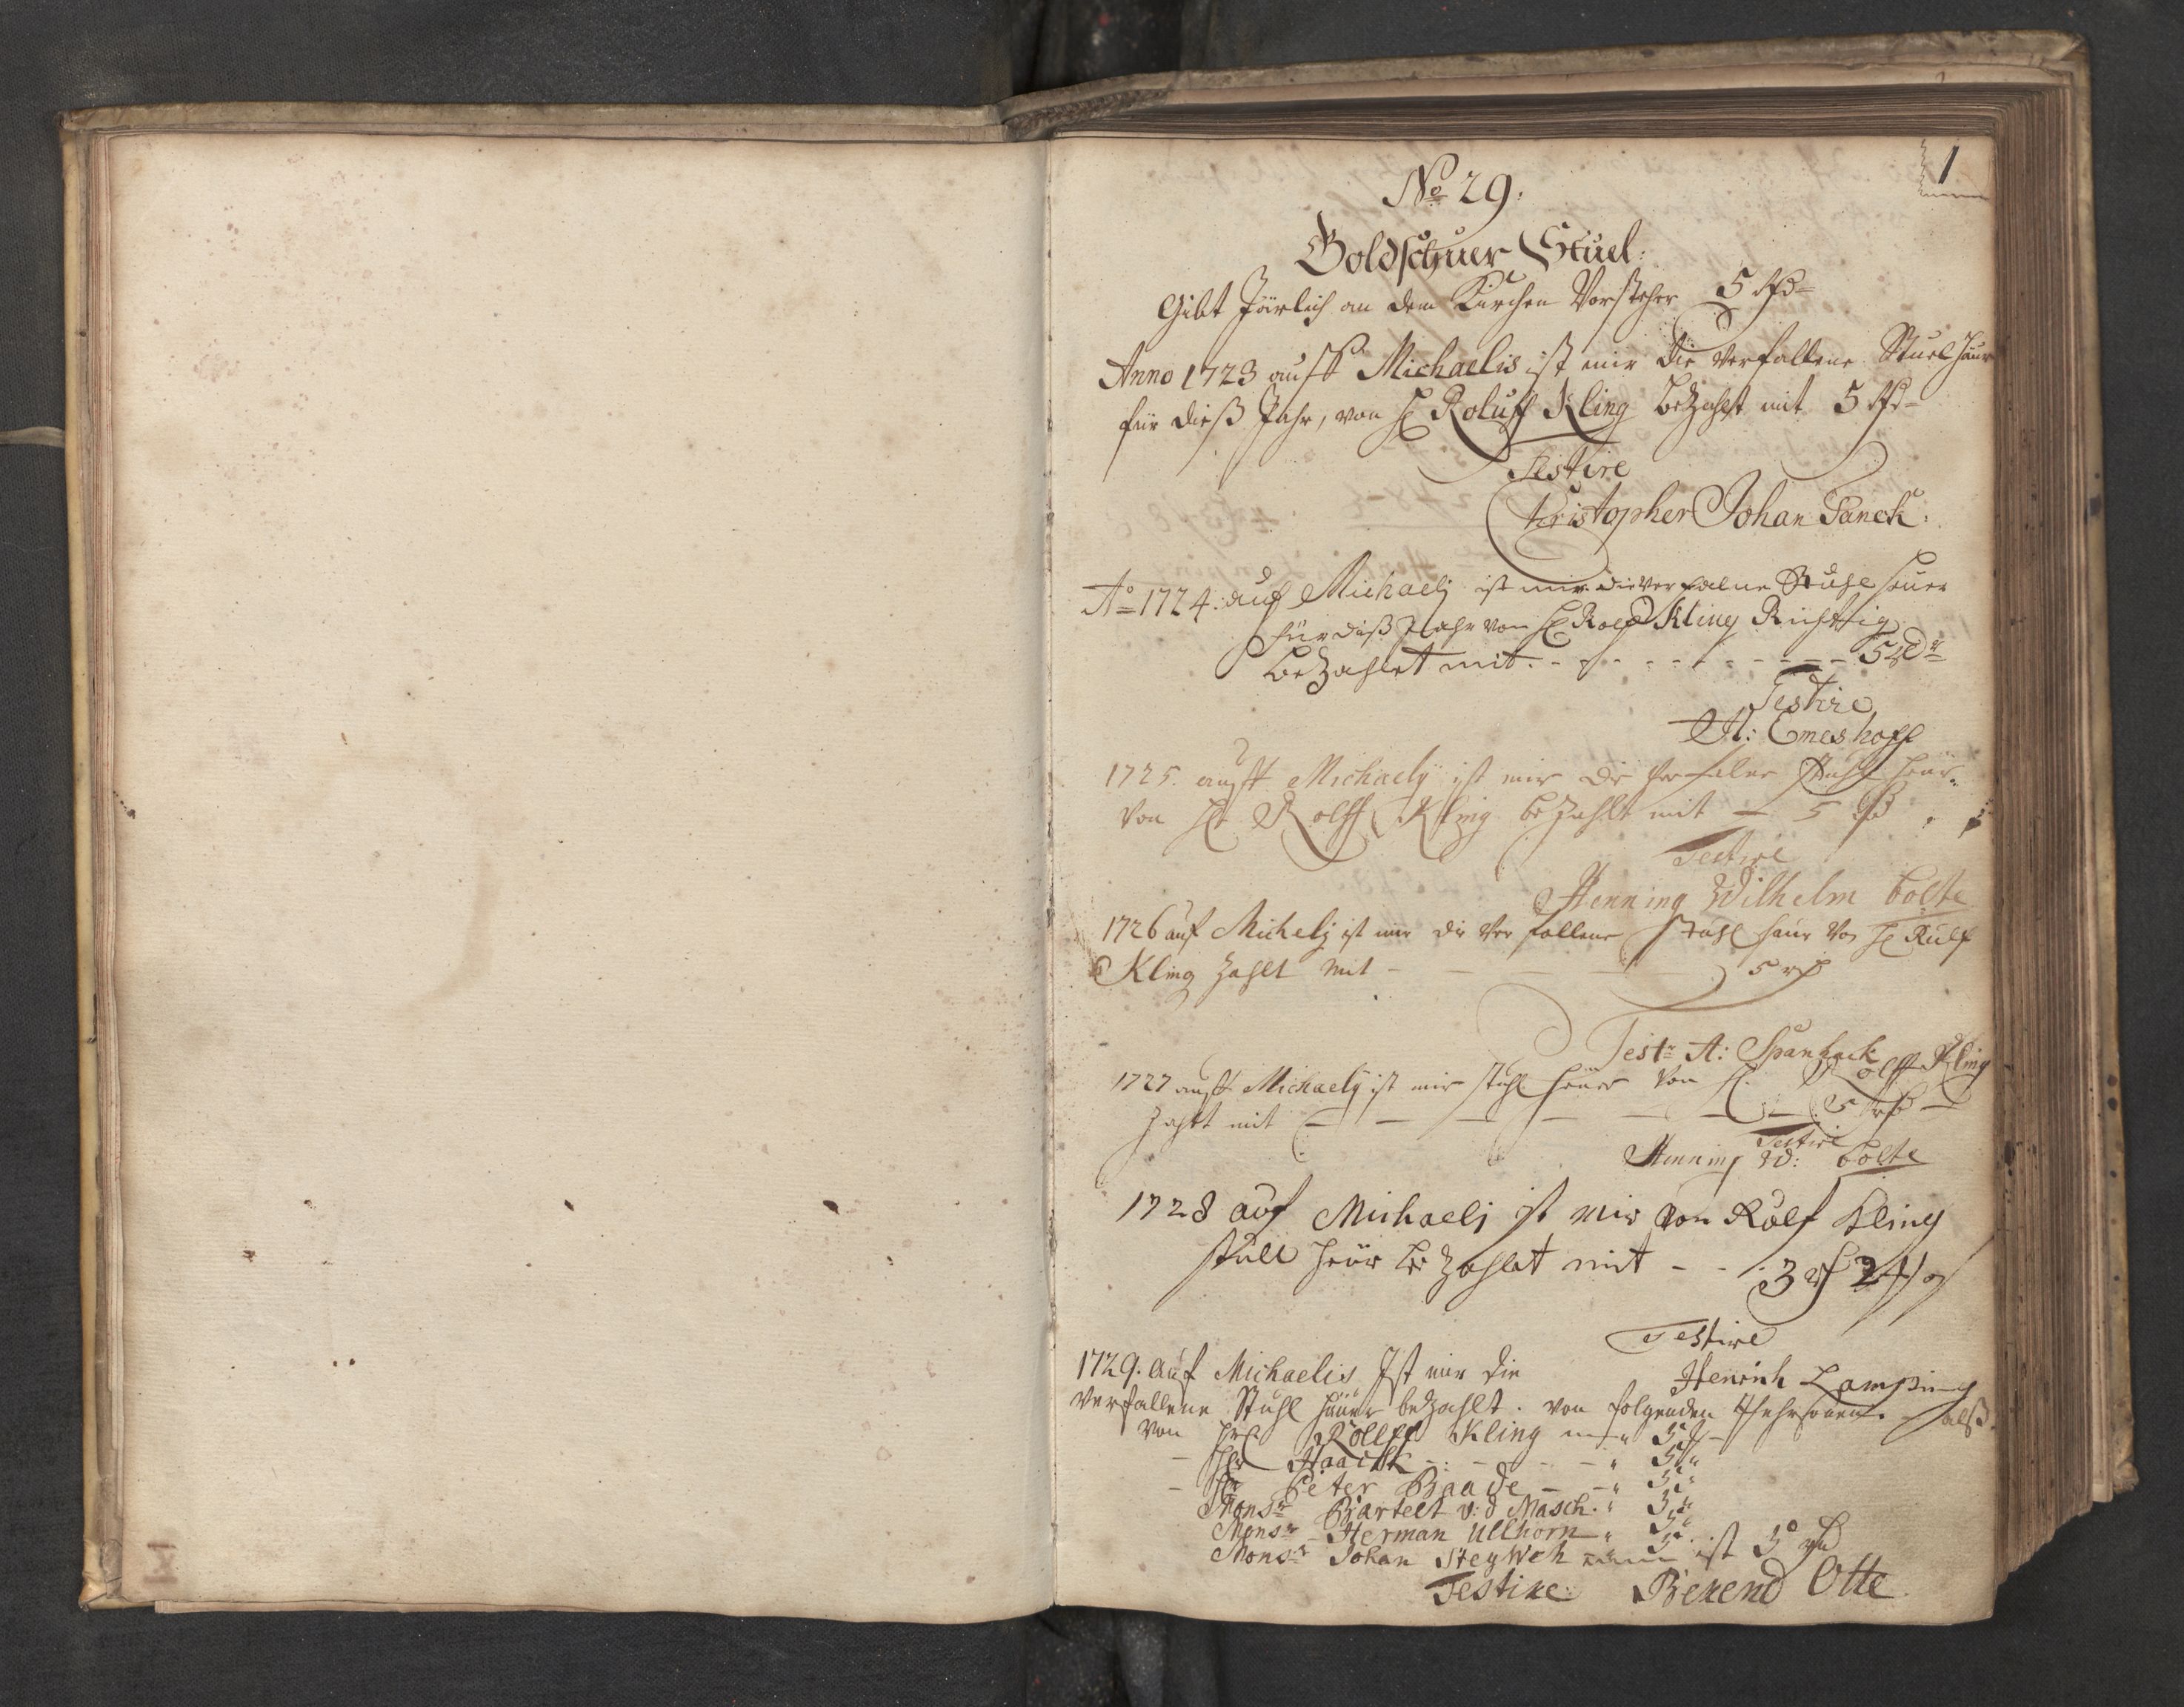 1
No 29.
Goldschuer Stuel:
Gibt Järlich an dem Kirchen Vorsteher 5 Rd
Anno 1723 auff Michaelis ist mir die verfallene Stuel häur
für dieß Jahr, von H Roluff Kling bezahlt mit 5 Rd
Testire
Christopher Johan Tanck.
Ao 1724. auf Michaelj ist mir die verfalne Stuhl heuer
für diß Jahr von H Rolf Kling Richtig
bezahlet mit. - - - - - - - 5 Rd
Testire
H: Emeshoff
1725. aufft Michaely ist mir die ferfalne stuhl heür
Von Hr Rolff Kling bezahlt mit — 5
Testire
Henning Wilhelm bolte
1726 auf Michelj ist mir die Verfallene stuhl heur Von H Rulf
Kling zahlt mit - 5
Test: A: Spanhack
1727 aufft Michaely ist mir stuhl heuer Von H. Rolff Kling
Zahlt mit — — — — — 5
Testire
Henning W: bolte
1728 auf Michaelj ist mir von Rulf Kling
stull heür bezahlet mit - - 3 24
Testire
Henrich Lamping
1729. auf Michaelis Ist mir die
Verfallene Stuhl häuer bezahlt. von folgenden Persohnen. alß.
Von Hr Rolff Kling 5
- Hr Haack - - - - 5
- Hr Peter Baade - - 5
Monsr Bartelt v: d Masch. 5
Monsr Herman Ullhorn 5
Monsr Johan Steyweh 5 ist 30
Testire: Berend Otte